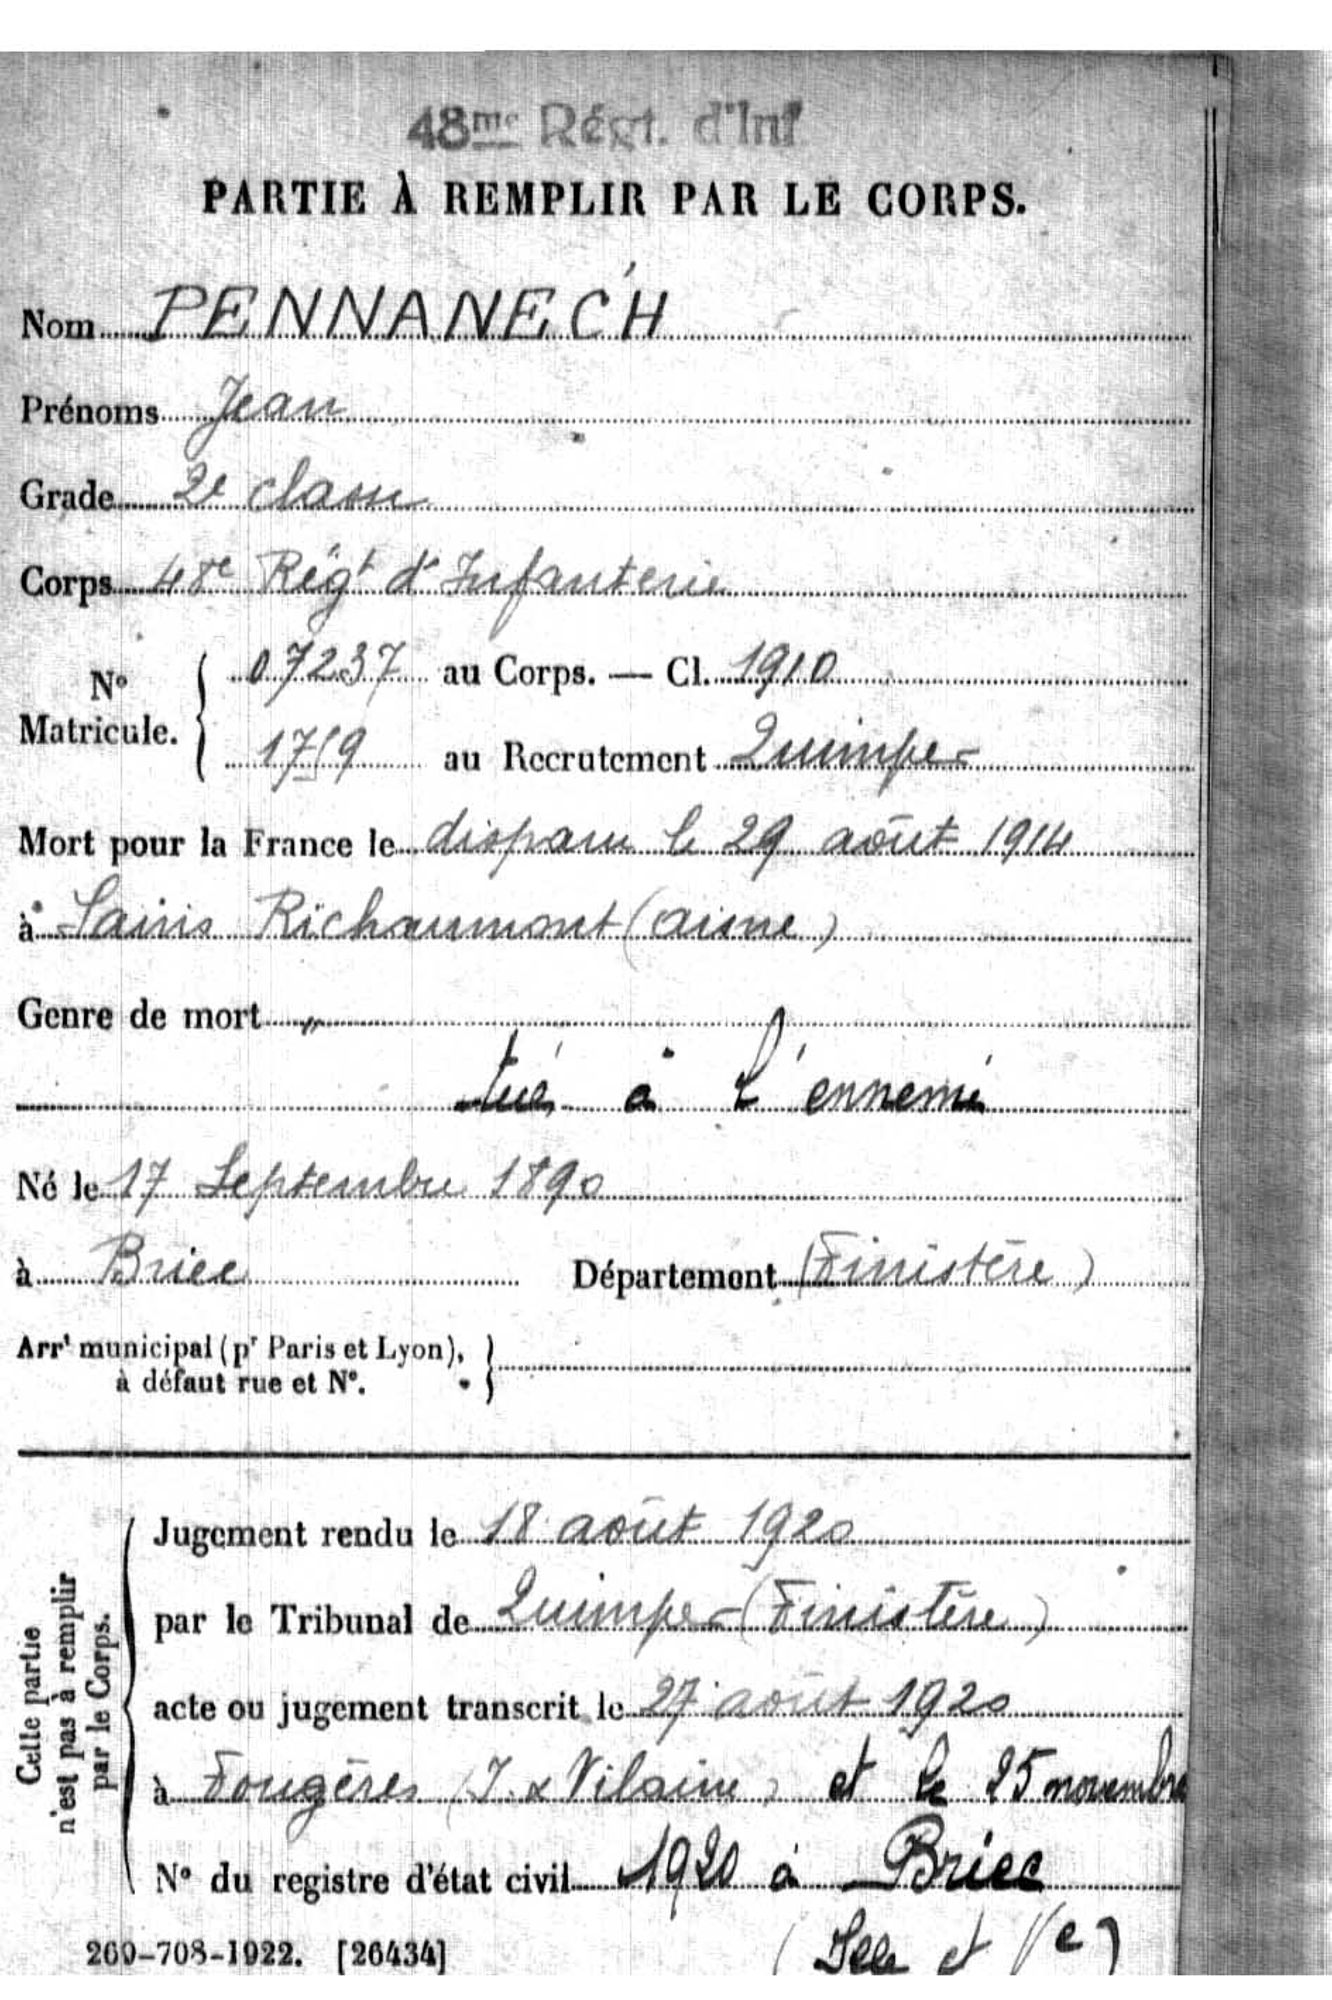 48me Régt. d'Inf
PARTIE À REMPLIR PAR LE CORPS.
Nom PENNANEC'H
Prénoms Jean
Grade 2e classe
Corps 48e Régt d'Infanterie
No Matricule. { 07237 au Corps. — Cl. 1910
1759 au Recrutement Quimper
Mort pour la France le disparu le 29 août 1914
à Sains Richaumont (aisne)
Genre de mort "
tué à l'ennemi
Né le 17 Septembre 1890
à Briec Département (Finistère)
Arrt municipal (pr Paris et Lyon), à défaut rue et No. }
Cette partie n'est pas à remplir par le Corps.
Jugement rendu le 18 août 1920
par le Tribunal de Quimper (Finistère)
acte ou jugement transcrit le 27 août 1920
à Fougères (I. & Vilaine) et le 25 novembre
No du registre d'état civil 1920 à Briec
(Ille et Ve)
269-708-1922. [26434]